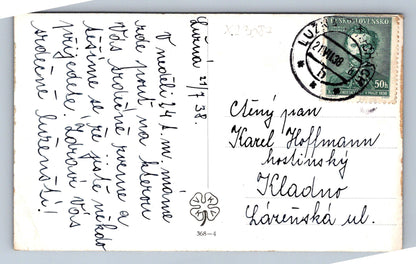 Lužná 21/7 38.
V neděli 24 t. m. máme
zde pouť, na kterou
Vás srdečně zveme a
těšíme se, že jistě někdo
přijedete. Zdraví Vás
srdečně luženští!
368-4
ČESKOSLOVENSKO
50h
LUŽNÁ
21.VII.38
Ctěný pan
Karel Hoffmann
hostinský
Kladno
Lázeňská ul.